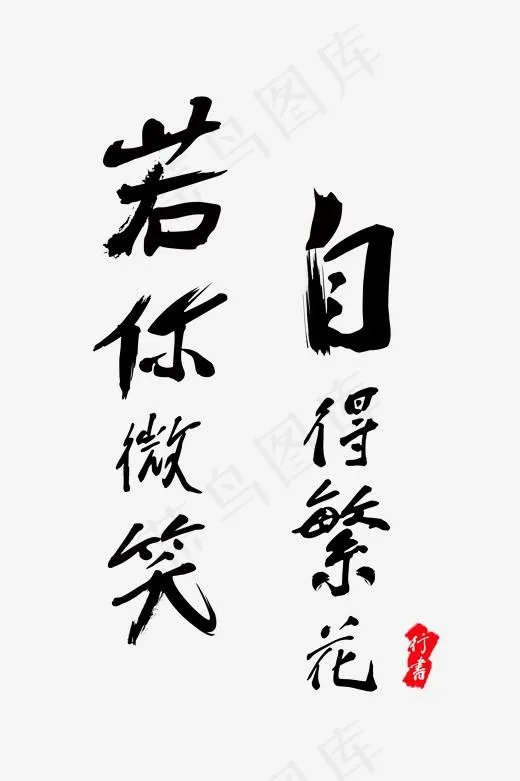 若你微笑
自得繁花
行書
菜鸟图库